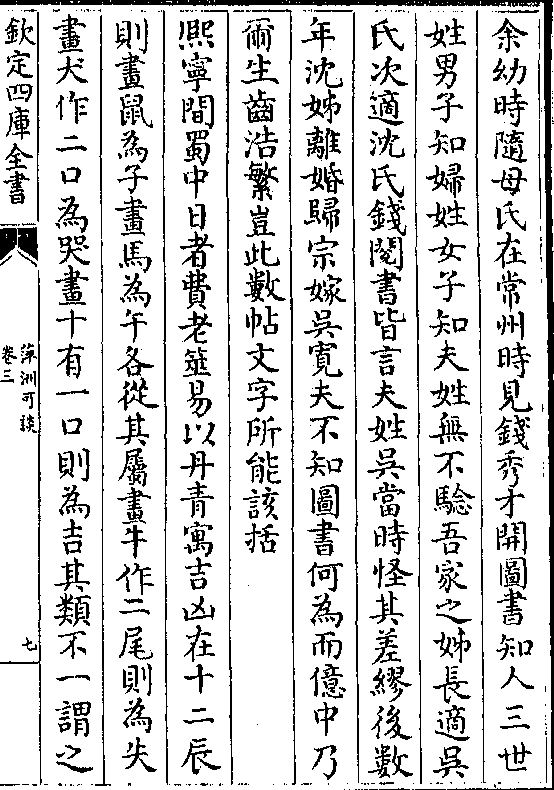 余幼時隨母氏在常州時見錢秀才開圖書知人三世
姓男子知婦姓女子知夫姓無不驗吾家之姊長適吳
氏次適沈氏錢閱書皆言夫姓吳當時怪其差繆後數
年沈姊離婚歸宗嫁吳寛夫不知圖書何為而億中乃
爾生齒浩繁豈此數帖文字所能該括
熈寧間蜀中日者費老筮易以丹青寓吉凶在十二辰
則畫鼠為子畫馬為午各從其屬畫牛作二尾則為失
畫犬作二口為哭畫十有一口則為吉其類不一謂之
欽定四庫全書
萍洲可談
卷三
七